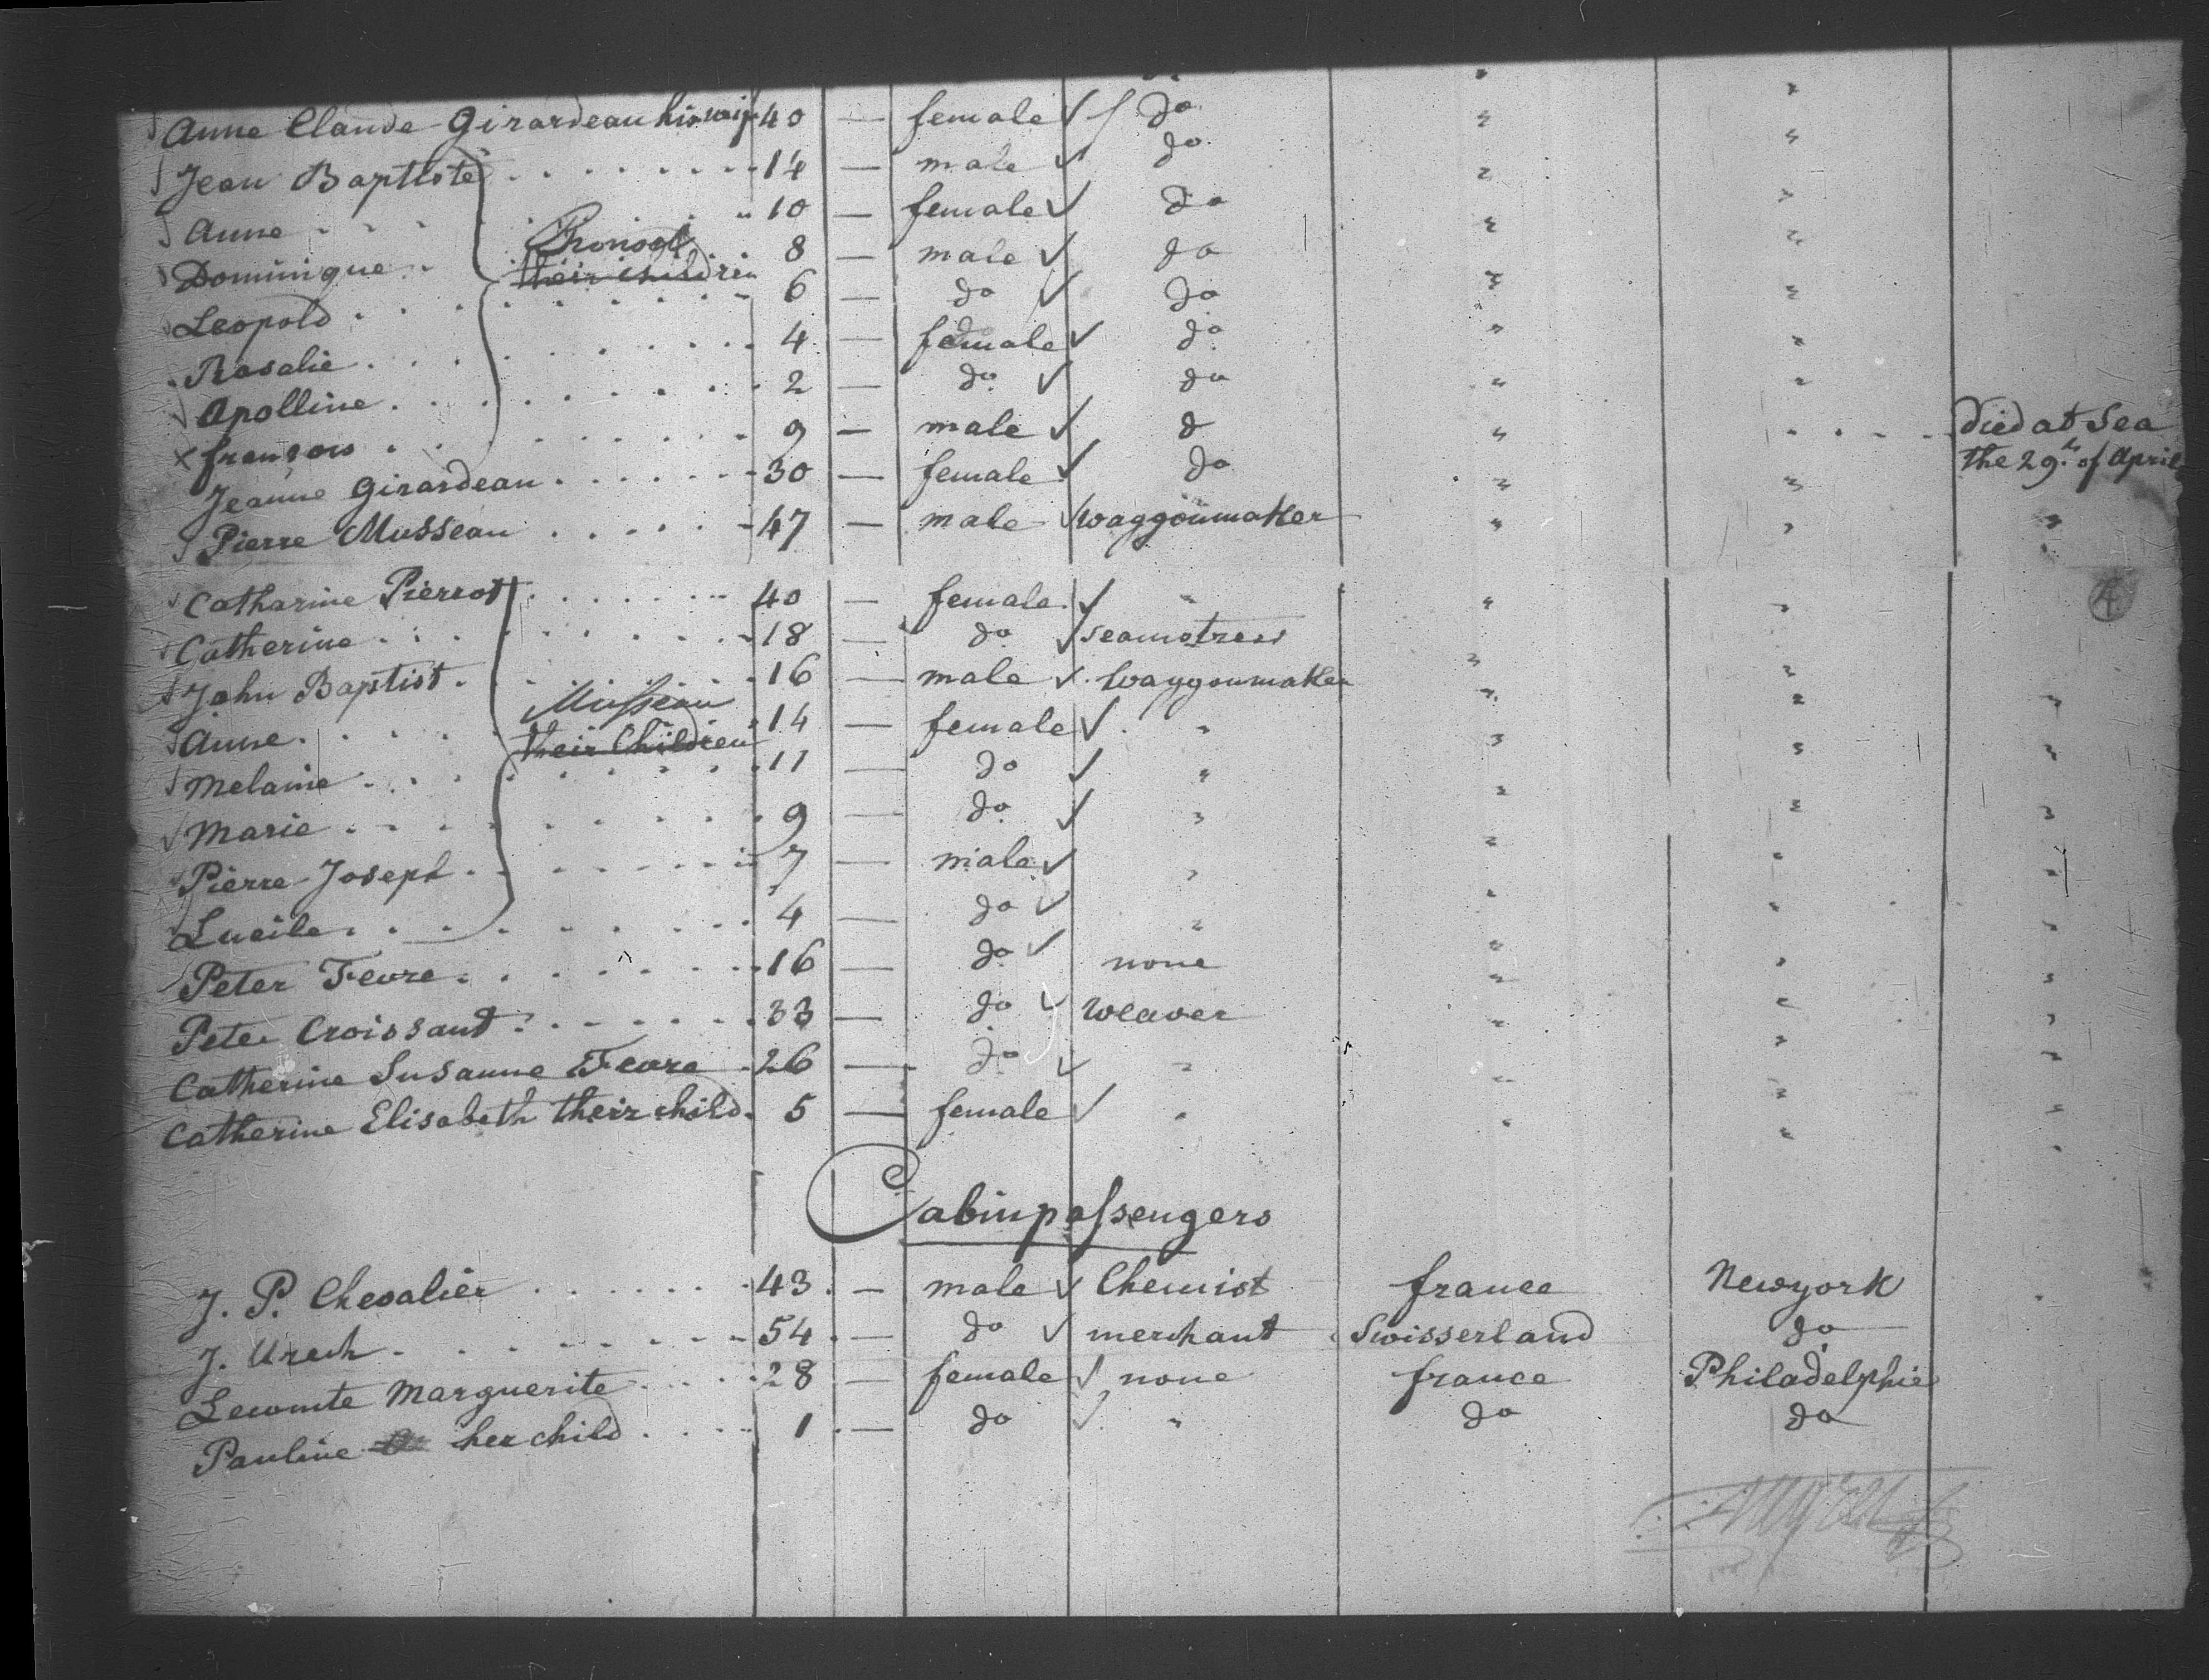 Anne Claude Girardeau his wife 40 — female do
Jean Baptiste 14 — male do
Anne 10 — female do
Dominique their children 8 — male do
Leopold 6 — do do
Rosalie 4 — female do
Apolline 2 — do do
x françois 9 — male d died at Sea
Jeanne Girardeau 30 — female do the 29th of April
Pierre Musseau 47 — male waggonmaker
Catharine Pierrot 40 — female "
Catherine 18 — do seamstress
John Baptist 16 — male waggonmaker
Musseau
Anne their Children 14 — female "
Melanie 11 — do "
Marie 9 — do "
Pierre Joseph 7 — male "
Lucile 4 — do "
Peter Fevre 16 — do none
Peter Croissant 33 — do weaver
Catherine Susanne Fevre 26 — do "
Catherine Elisabeth their child 5 — female "
Cabinpassengers
J. P. Chevalier 43 — male Chemist france Newyork
J. Urech 54 — do merchant Swisserland do
Lecomte Marguerite 28 — female none france Philadelphie
Pauline her child 1 — do " do do